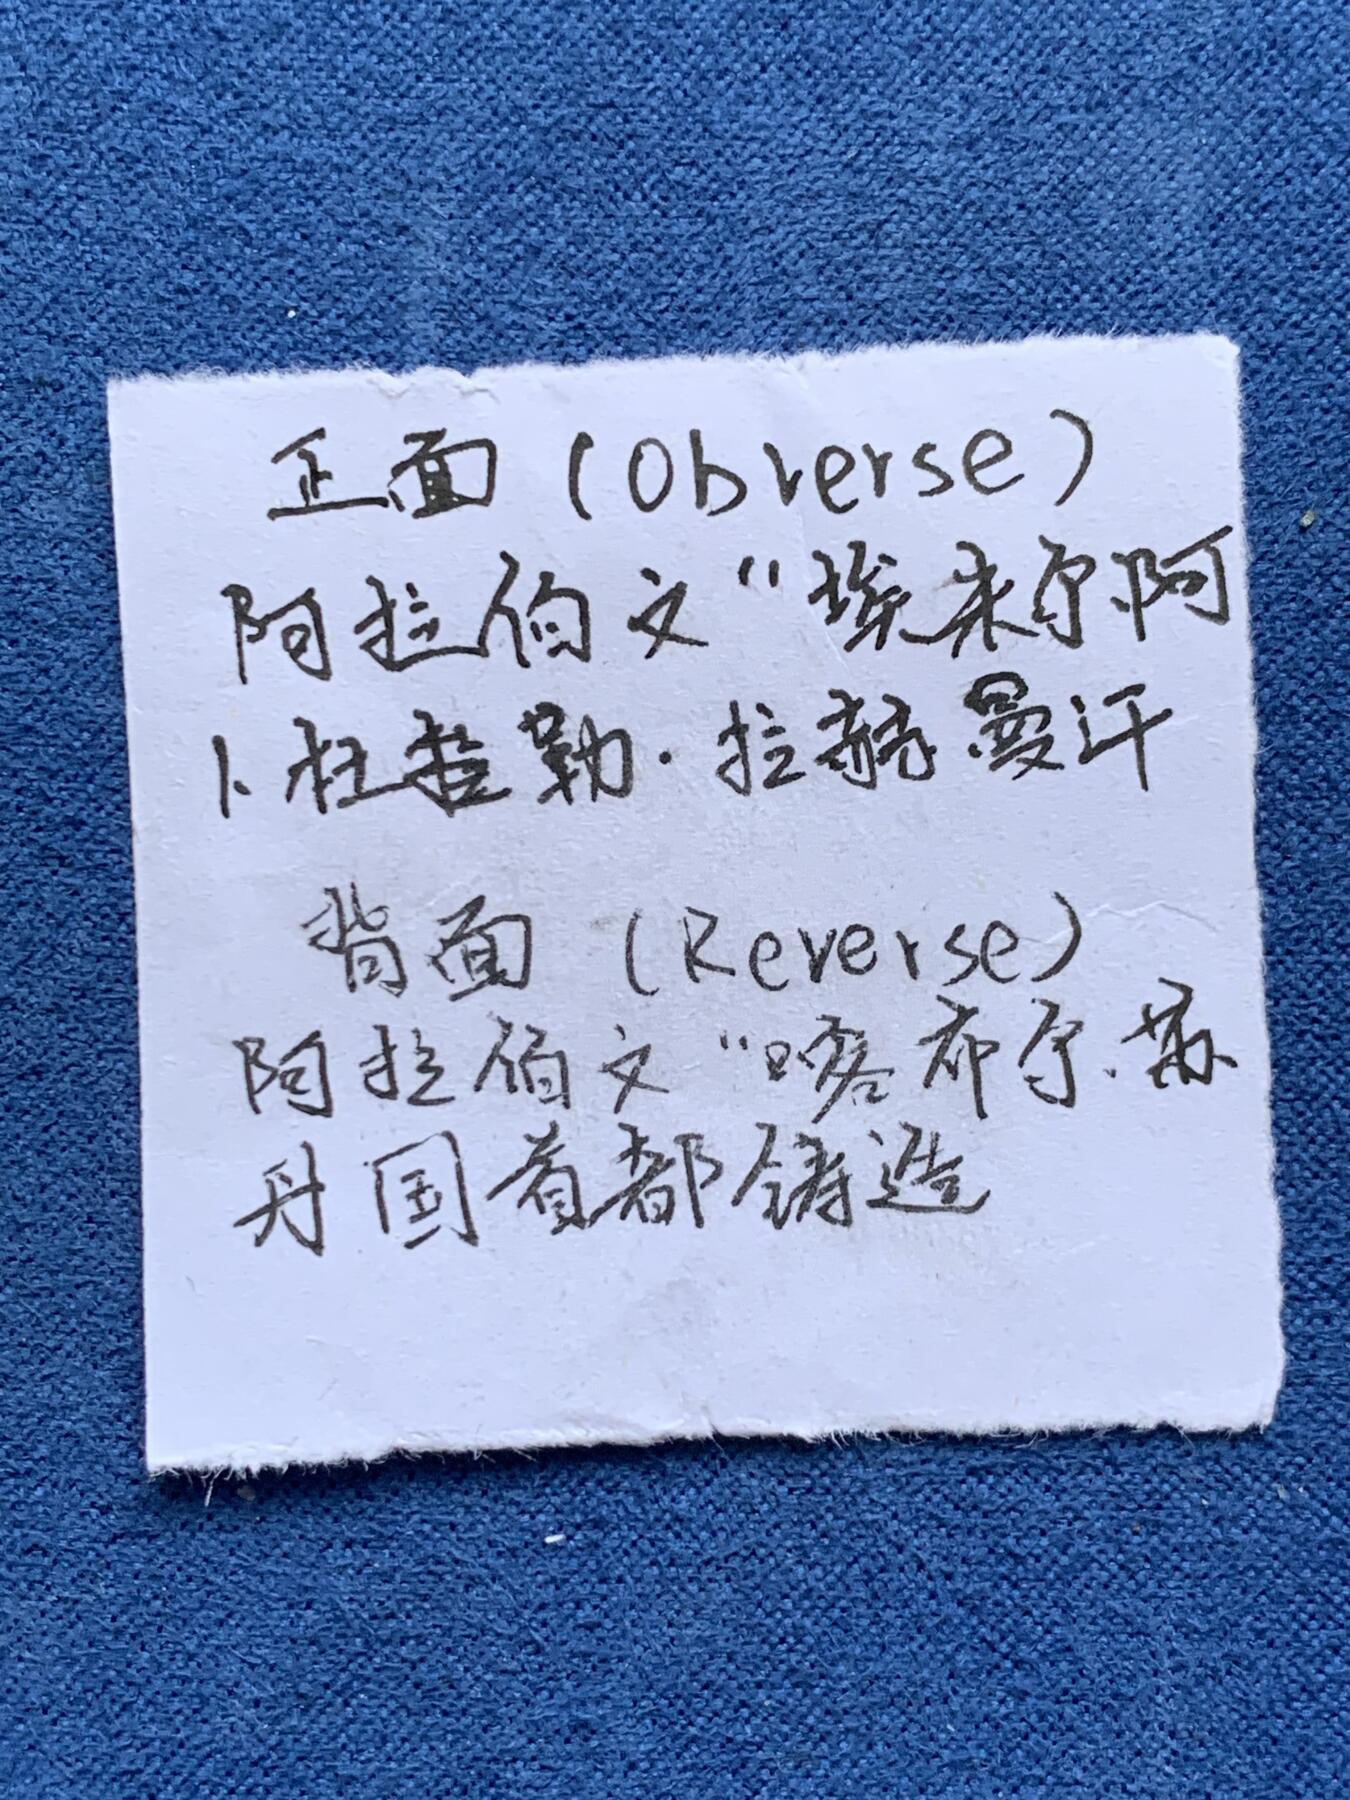 正面 (Obverse)
阿拉伯文“埃米尔.阿
卜杜拉勒·拉赫曼汗
背面 (Reverse)
阿拉伯文“喀布尔.苏
丹国首都铸造